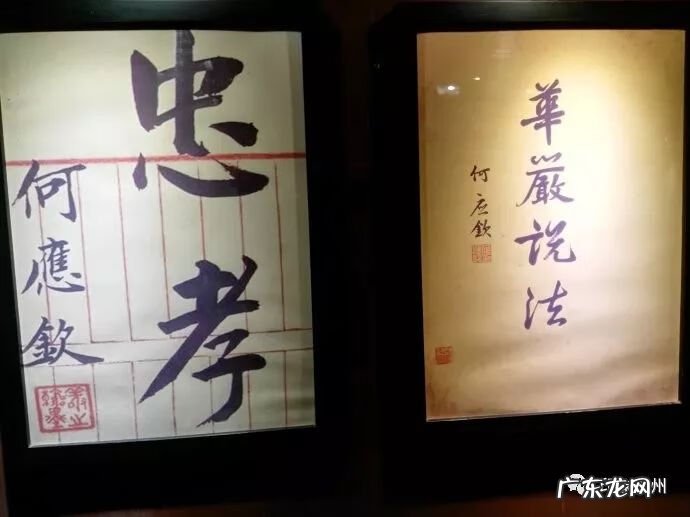 忠孝
何應欽
華嚴説法
何应欽
广东龙网
州